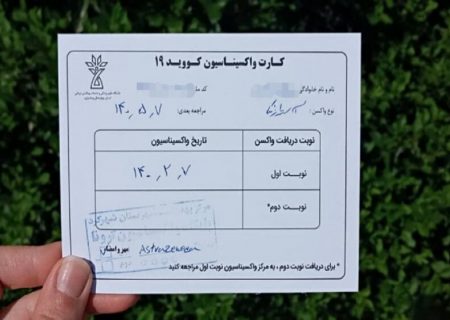 کارت واکسیناسیون کووید ۱۹
نام و نام خانوادگی
نوع واکسن: آسترازنکا مراجعه بعدی: ۱۴۰۰٫۵٫۷
نوبت دریافت واکسن تاریخ واکسیناسیون
نوبت اول ۱۴۰۰٫۲٫۷
نوبت دوم*
شهرستان شهرکرد
کرونا
مهر و امضاء AstraZeneca
* برای دریافت نوبت دوم ، به مرکز واکسیناسیون نوبت اول مراجعه کنید